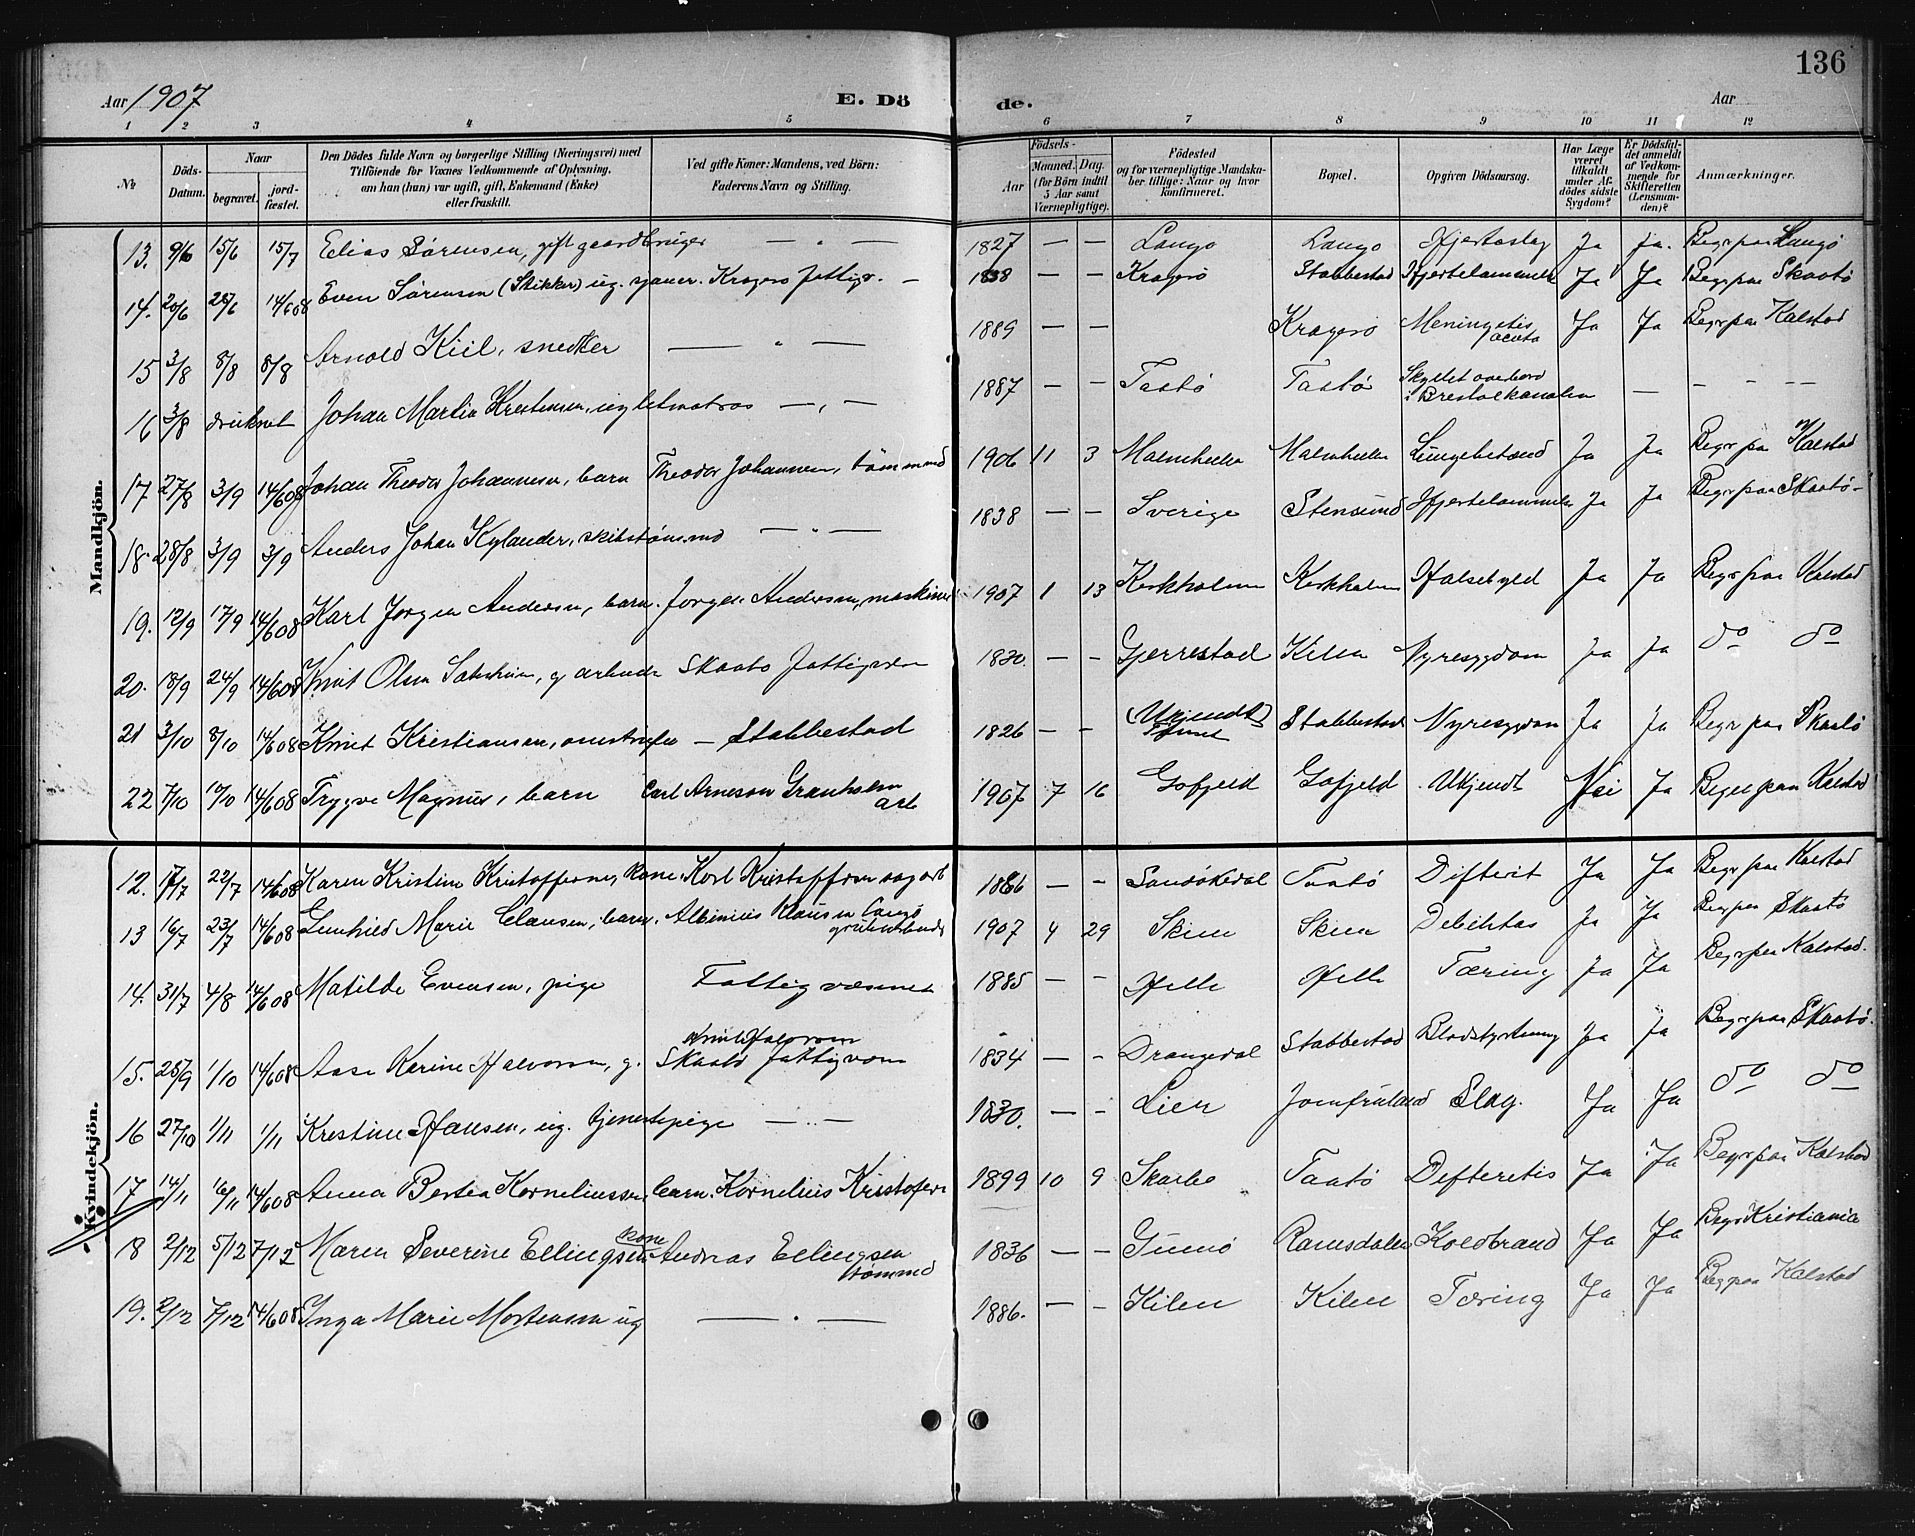 136
Aar 1907 E. Dö de. Aar
1 2 3 4 5 6 7 8 9 10 11 12
№ Döds-Datum. Naar begravet. jordfæstet. Den Dödes fulde Navn og borgerlige Stilling (Næringsvei) med Tilföiende for Voxnes Vedkommende af Oplysning, om han (hun) var ugift, gift, Enkemand (Enke) eller fraskilt. Ved gifte Koner: Mandens, ved Börn: Faderens Navn og Stilling. Födsels- Aar Maaned. Dag. (for Börn indtil 5 Aar samt Værnepligtige). Födested og for værnepligtige Mandskaber tillige: Naar og hvor konfirmeret. Bopæl. Opgiven Dödsaarsag. Har Læge været tilkaldt under Afdödes sidste Sygdom? Er Dödsfaldet anmeldt af Vedkommende for Skifteretten (Lensmanden)? Anmærkninger.
Mandkjön.
13. 9/6 15/6 15/7 Elias Sørensen, gift gaardbruger — " — 1827 — — Langø Langø Hjerteslag Ja Ja. Begr paa Langø
14. 20/6 28/6 14/6 08 Even Sørensen (Stikker) ug. Kragerø Fattigv. — 1838 — — Kragerø Stabbestad Hjertelammelse Ja Ja Begr paa Skaatø
15 3/8 8/8 8/8 Arnold Kiil, snedker — " — 1889 — — Kragerø Meningitis acuta Ja Ja Begr paa Kalstad
16 3/8 druknet Johan Martin Kristensen, ug letmatros — " — 1887 — — Taatø Taatø Skyllet overbord i Bristolkanalen — — — — —
17 27/8 3/9 14/6 08 Johan Theodor Johannesen, barn Theodor Johannesen, tømmmd 1906 11 3 Malmhella Malmhella Lungebetænd Ja Ja Begr paa Kalstad
18. 28/8 3/9 3/9 Anders Johan Kylander, skibstømmd — " — 1838 — — Sverige Stensund Hjertelammelse Ja Ja Begr paa Skaatø
19. 12/9 17/9 14/6 08 Karl Jørgen Andersen, barn. Jørgen Andersen, maskinist 1907 1 13 Kirkholmen Kirkholmen Halsebyld Ja Ja Begr paa Kalstad
20. 18/9 24/9 14/6 08 Knut Olsen g arbeider Skaatø Fattigvæsen 1830. — — Gjerrestad Kilen Nyresygdom Ja Ja do do
21 3/10 8/10 14/6 08 Knut Kristiansen, omstreifer — Stabbestad 1826 — — (Ukjendt) Stabbestad Nyresygdom Ja Ja Begr paa Skaatø
22 7/10 12/10 14/6 08 Trygve Magnus, barn Carl Arneson Granholm arb 1907 7 16 Gofjeld Gofjeld Ukjendt Nei Ja Begr paa Kalstad
Kvindekjön.
12. 17/7 22/7 14/6 08 Karen Kristine Kristoffersen, kone. Karl Kristoffersen sagarb 1886 — — Sandøkedal Taatø Difterit Ja Ja Begr paa Kalstad
13 16/7 23/7 14/6 08 Gunhild Marie Clausen, barn. Albinius Klausen Langø grubearbeider 1907 4 29 Skien Skien Debilitas Ja Ja Begr paa Skaatø
14. 31/7 4/8 14/6 08 Matilde Evensen, pige Fattigvæsenet 1885 — — Helle Helle Tæring Ja Ja Begr paa Kalstad.
15. 25/9 1/10 14/6 08 Aase Karine Halvorsen, g. Knut Halvorsen Skaatø fattigvæsen 1834 — — Drangedal Stabbestad Blodstyrtning Ja Ja Begr paa Skaatø.
16 27/10 1/11 1/11 Kristine Hansen, ug. tjenestepige — " — 1830. — — Lier Jomfruland Slag. Ja Ja do do
17 14/11 16/11 14/6 08 Anna Bertea Korneliussen, barn. Kornelius Kristofersen 1899 10 9 Skarbo Taatø Difteritis Ja Ja Begr paa Kalstad
18 2/12 5/12 7/12 Maren Severine Ellingsen kone Andreas Ellingsen tømmmd 1836 — — Gumø Ramsdalen Koldbrand Ja Ja Begr Kristiania
19. 2/12 7/12 14/6 08 Inga Marie Mortensen ug — " — 1886. — — Kilen Kilen Tæring Ja Ja Beg paa Kalstad